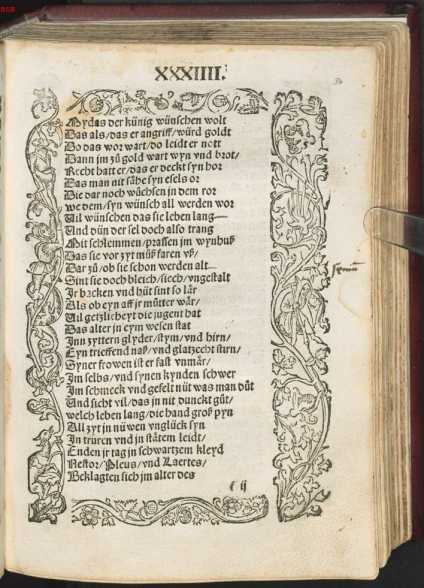 XXXIIII.
Mydas der künig wünschen wolt
Das als/das er angriff/würd goldt
Do das wor wart/do leidt er nott
Dann jm zů gold wart wyn vnd brot/
Recht hatt er/das er deckt syn hor
Das man nit sähe syn esels or
Die dar noch wůchsen in dem ror
we dem/syn wünsch all werden wor
Vil wünschen das sie leben lang
Vnd dün der sel doch also trang
Mit schlemmen/prassen jm wynhuß
Das sie vor zyt můß faren vß/
Dar zů/ob sie schon werden alt
Sint sie doch bleich/siech/vngestalt
Ir backen vnd hüt sint so lär
Als ob eyn aff jr můtter wär/
Vil getzlicheyt die jugent hat
Das alter in eym wesen stat
Inn zyttern glyder/stym/vnd hirn/
Eyn trieffend naß/vnd glatzecht stirn/
Syner frowen ist er fast vnmär/
Im selbs/vnd synen kynden schwer
Im schmeck vnd gefelt nüt was man důt
Vnd sicht vil/das jn nit dunckt gůt/
welch leben lang/die hand groß pyn
All zyt in nüwen vnglück syn
In truren vnd in stätem leidt/
Enden jr tag in schwartzem kleyd
Nestor/Pleus/vnd Laertes/
Beklagten sich jm alter des
ij